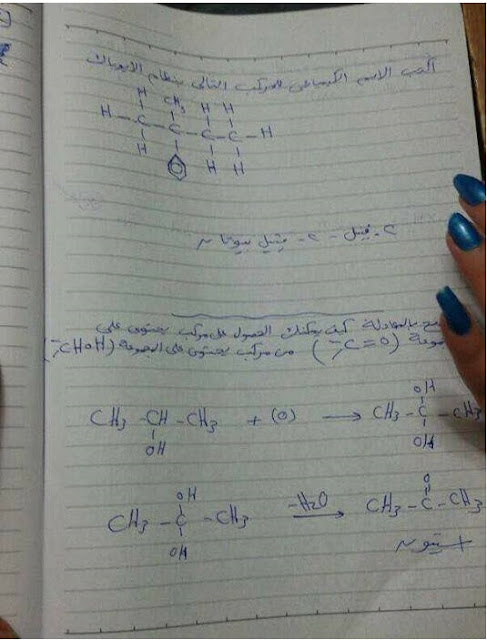 أكتب الاسم الكيميائى للمركب التالى بنظام الايوباك
H CH3 H H
H - C - C - C - C - H
H H H
٢- فينيل - ٢ - ميثيل بيوتان
بالمعادلة كيف يمكنك الحصول على مركب يحتوى على
(C=O) من مركب يحتوى على المجموعة (CHOH)
CH3 - CH - CH3 + (O) → CH3 - C - CH3
OH
OH
OH
CH3 - C - CH3 -H2O → CH3 - C - CH3
OH
OH
O
اسيتون